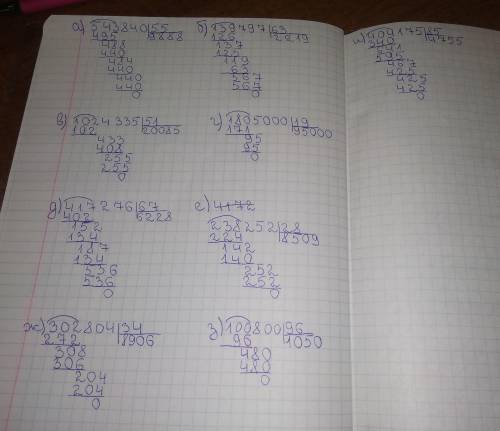 а) 543840|55
495 9888
488
440
484
440
440
440
0
б) 139797|63
126 2219
137
126
119
63
567
567
0
и) 404175|85
340 4755
641
595
467
425
425
425
0
в) 1024335|51
102 20085
433
408
255
255
0
г) 1805000|19
171 95000
95
95
0
д) 417276|67
402 6228
152
134
187
134
536
536
0
е) 4172
238252|28
224 8509
142
140
252
252
0
ж) 302804|34
272 8906
308
306
204
204
0
з) 100800|96
96 1050
480
480
0